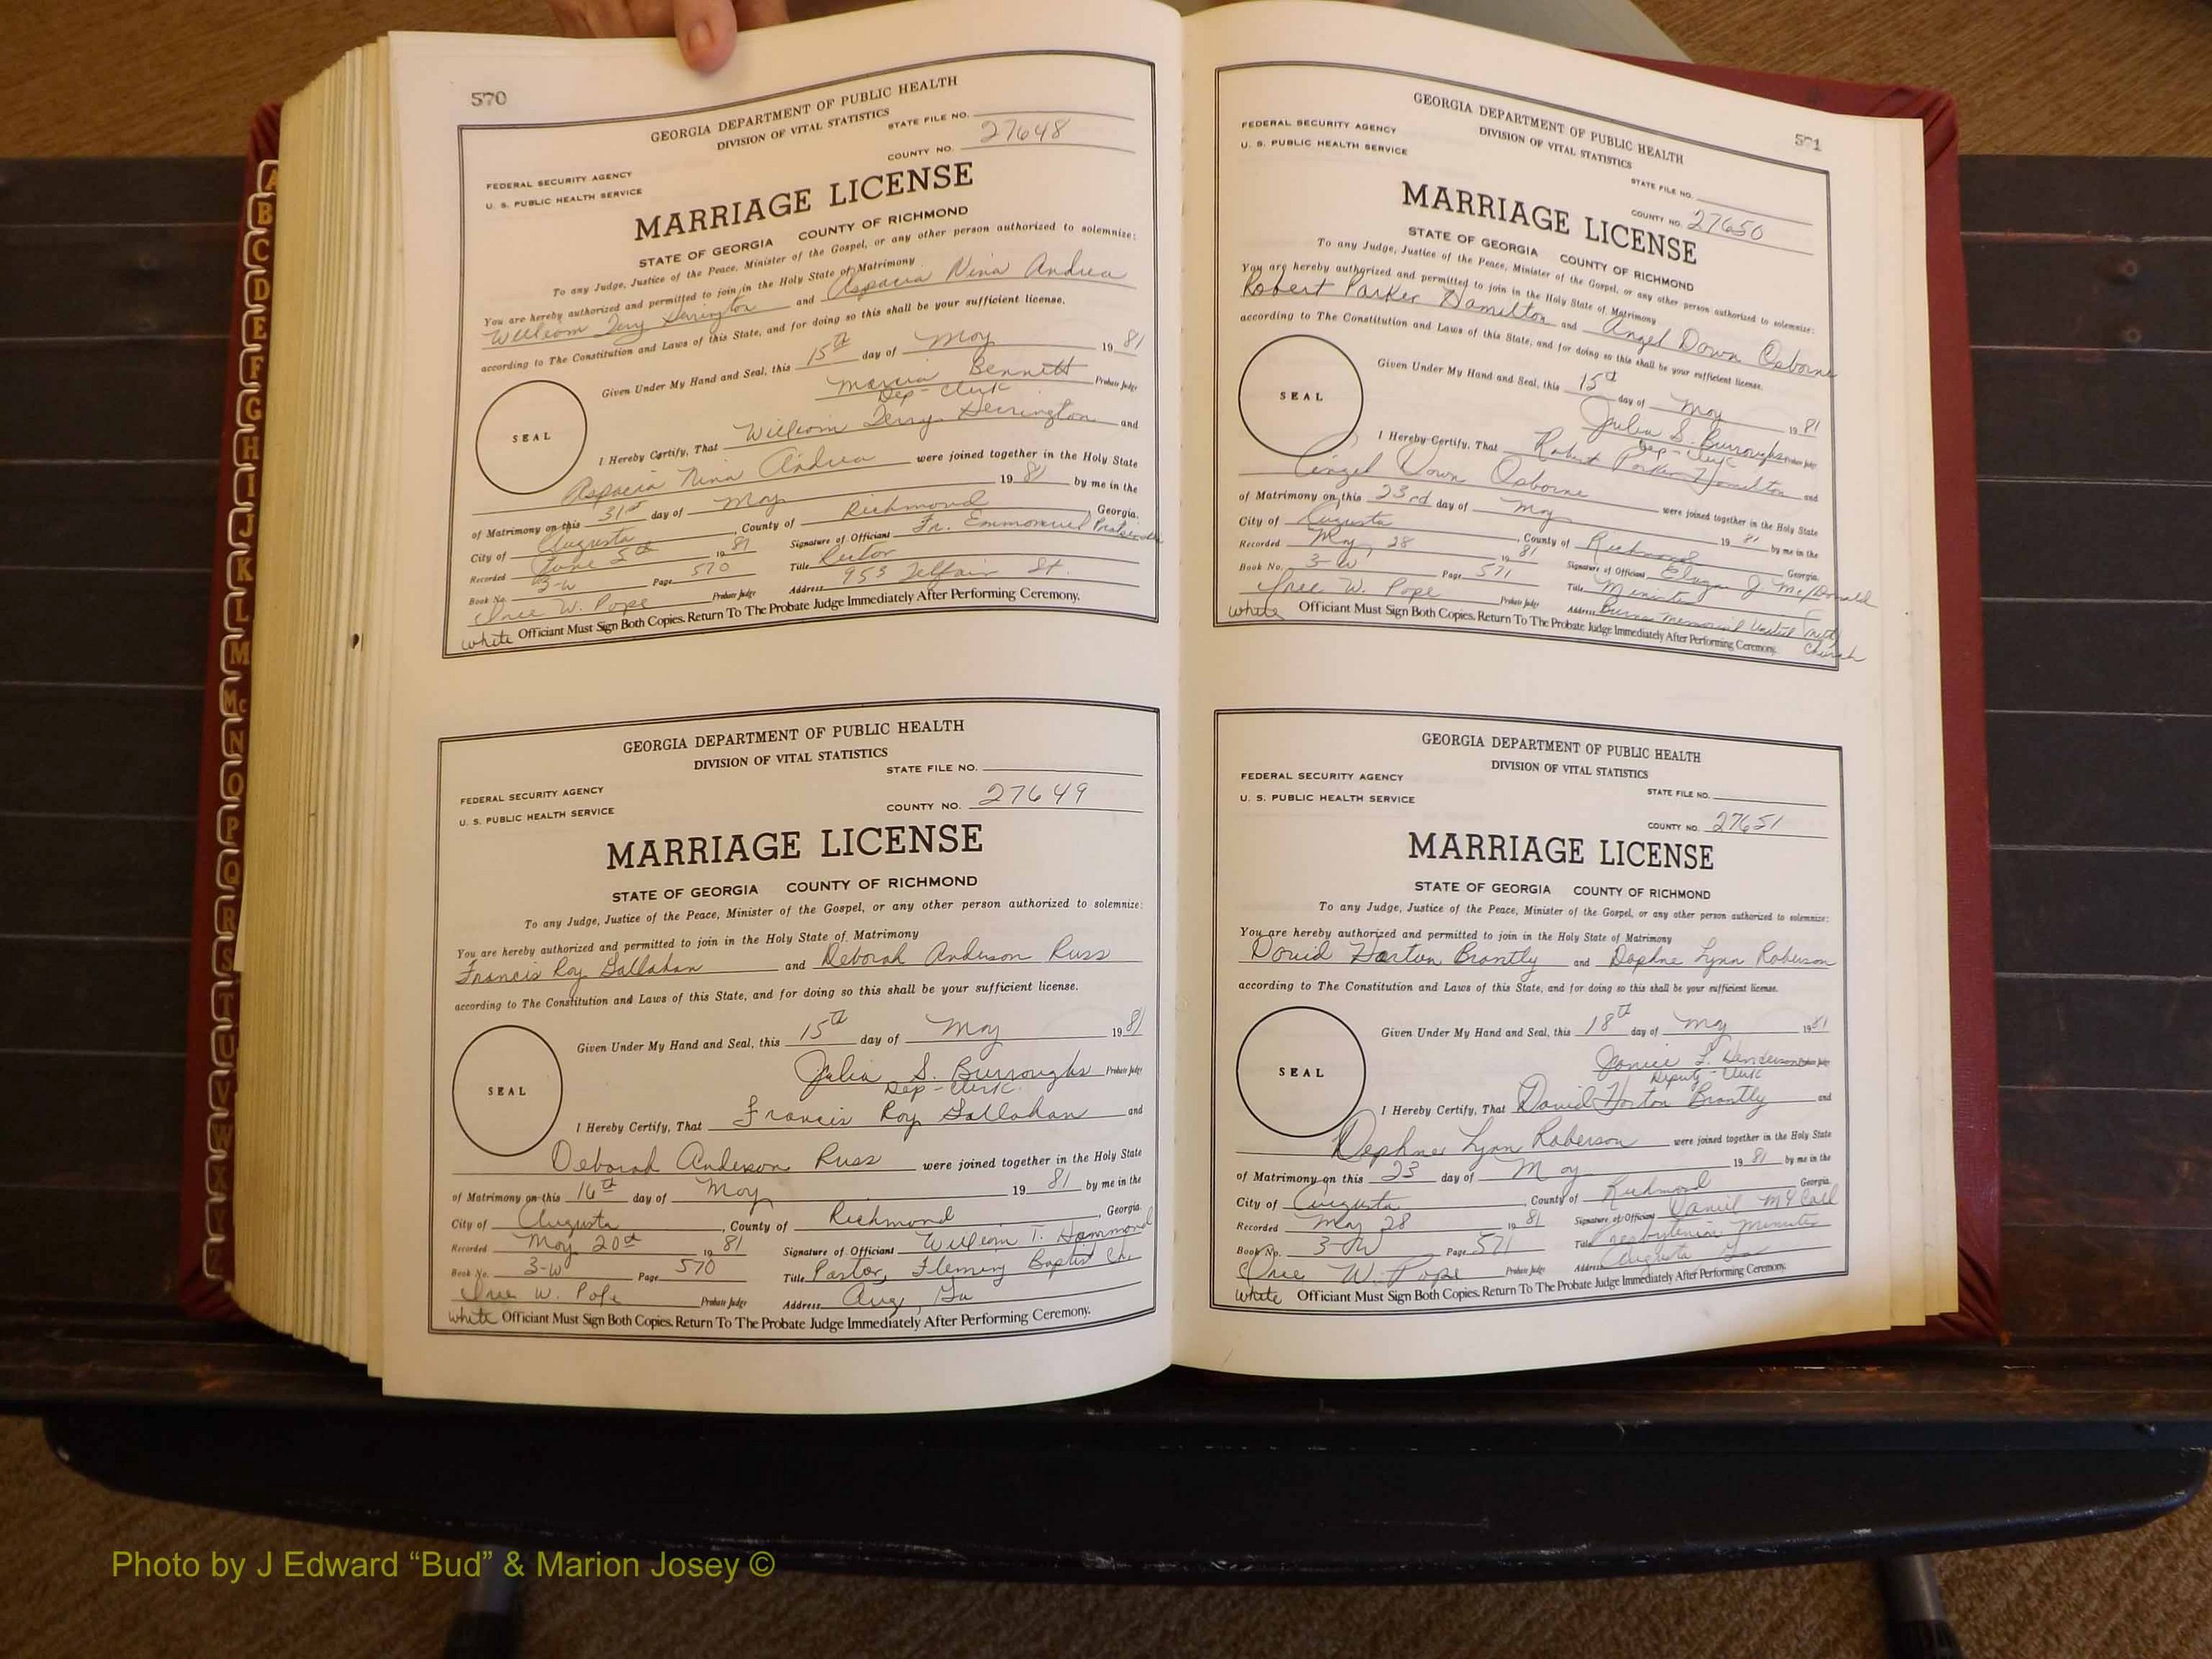 570
GEORGIA DEPARTMENT OF PUBLIC HEALTH
DIVISION OF VITAL STATISTICS
STATE FILE NO.
COUNTY NO. 27648
FEDERAL SECURITY AGENCY
U. S. PUBLIC HEALTH SERVICE
MARRIAGE LICENSE
STATE OF GEORGIA COUNTY OF RICHMOND
To any Judge, Justice of the Peace, Minister of the Gospel, or any other person authorized to solemnize:
You are hereby authorized and permitted to join in the Holy State of Matrimony
William Terry Herrington and Aspacia Nina Andrea
according to The Constitution and Laws of this State, and for doing so this shall be your sufficient license.
Given Under My Hand and Seal, this 15th day of May 1981
Marcia Bennett Probate Judge
Dep-Clerk
SEAL
I Hereby Certify, That William Terry Herrington and
Aspacia Nina Andrea were joined together in the Holy State
of Matrimony on this 31st day of May 1981 by me in the
City of Augusta, County of Richmond, Georgia.
Recorded June 5th 1981 Signature of Officiant Fr. Emmanuel
Book No. 3-W Page 570 Title Rector
Iree W. Pope Probate Judge Address 953 Telfair St.
white Officiant Must Sign Both Copies. Return To The Probate Judge Immediately After Performing Ceremony.
GEORGIA DEPARTMENT OF PUBLIC HEALTH
DIVISION OF VITAL STATISTICS
STATE FILE NO.
FEDERAL SECURITY AGENCY
U. S. PUBLIC HEALTH SERVICE
COUNTY NO. 27649
MARRIAGE LICENSE
STATE OF GEORGIA COUNTY OF RICHMOND
To any Judge, Justice of the Peace, Minister of the Gospel, or any other person authorized to solemnize:
You are hereby authorized and permitted to join in the Holy State of Matrimony
Francis Roy Gallahan and Deborah Anderson Russ
according to The Constitution and Laws of this State, and for doing so this shall be your sufficient license.
Given Under My Hand and Seal, this 15th day of May 1981
Julia S. Burroughs Probate Judge
Dep-Clerk
SEAL
I Hereby Certify, That Francis Roy Gallahan and
Deborah Anderson Russ were joined together in the Holy State
of Matrimony on this 16th day of May 1981 by me in the
City of Augusta, County of Richmond, Georgia.
Recorded May 20th 1981 Signature of Officiant William T. Hammond
Book No. 3-W Page 570 Title Pastor, Fleming Baptist Ch.
Iree W. Pope Probate Judge Address Aug, Ga
white Officiant Must Sign Both Copies. Return To The Probate Judge Immediately After Performing Ceremony.
571
GEORGIA DEPARTMENT OF PUBLIC HEALTH
DIVISION OF VITAL STATISTICS
FEDERAL SECURITY AGENCY
U. S. PUBLIC HEALTH SERVICE
STATE FILE NO.
COUNTY NO. 27650
MARRIAGE LICENSE
STATE OF GEORGIA COUNTY OF RICHMOND
To any Judge, Justice of the Peace, Minister of the Gospel, or any other person authorized to solemnize:
You are hereby authorized and permitted to join in the Holy State of Matrimony
Robert Parker Hamilton and Angel Dawn Osborne
according to The Constitution and Laws of this State, and for doing so this shall be your sufficient license.
Given Under My Hand and Seal, this 15th day of May 1981
Julia S. Burroughs Probate Judge
Dep-Clerk
SEAL
I Hereby Certify, That Robert Parker Hamilton and
Angel Dawn Osborne were joined together in the Holy State
of Matrimony on this 23rd day of May 1981 by me in the
City of Augusta, County of Richmond Georgia.
Recorded May, 28 1981 Signature of Officiant J McDonald
Book No. 3-W Page 571 Title Minister
Iree W. Pope Probate Judge Address Burns Memorial United Meth
Church
white Officiant Must Sign Both Copies. Return To The Probate Judge Immediately After Performing Ceremony.
GEORGIA DEPARTMENT OF PUBLIC HEALTH
DIVISION OF VITAL STATISTICS
FEDERAL SECURITY AGENCY
U. S. PUBLIC HEALTH SERVICE
STATE FILE NO.
COUNTY NO. 27651
MARRIAGE LICENSE
STATE OF GEORGIA COUNTY OF RICHMOND
To any Judge, Justice of the Peace, Minister of the Gospel, or any other person authorized to solemnize:
You are hereby authorized and permitted to join in the Holy State of Matrimony
David Horton Brantly and Daphne Lynn Roberson
according to The Constitution and Laws of this State, and for doing so this shall be your sufficient license.
Given Under My Hand and Seal, this 18th day of May 1981
Janice L. Henderson Probate Judge
Deputy-Clerk
SEAL
I Hereby Certify, That David Horton Brantly and
Daphne Lynn Roberson were joined together in the Holy State
of Matrimony on this 23 day of May 1981 by me in the
City of Augusta, County of Richmond Georgia.
Recorded May 28 1981 Signature of Officiant Daniel McCall
Book No. 3-W Page 571 Title Presbyterian Minister
Iree W. Pope Probate Judge Address Augusta Ga
white Officiant Must Sign Both Copies. Return To The Probate Judge Immediately After Performing Ceremony.
A
B
C
D
E
F
G
H
I
J
K
L
M
Mc
N
O
P
Q
R
S
T
U
V
W
X
Y
Z
Photo by J Edward “Bud” & Marion Josey ©